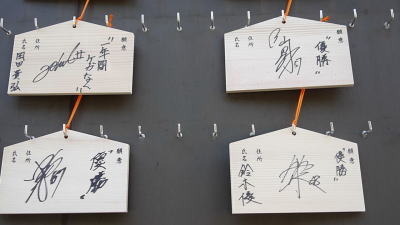 願意
"一年間
ケガなく"
住所
氏名
岡田貴弘
願意
"優勝"
住所
氏名
願意
"優勝"
住所
氏名
願意
"優勝"
住所
氏名
鈴木優